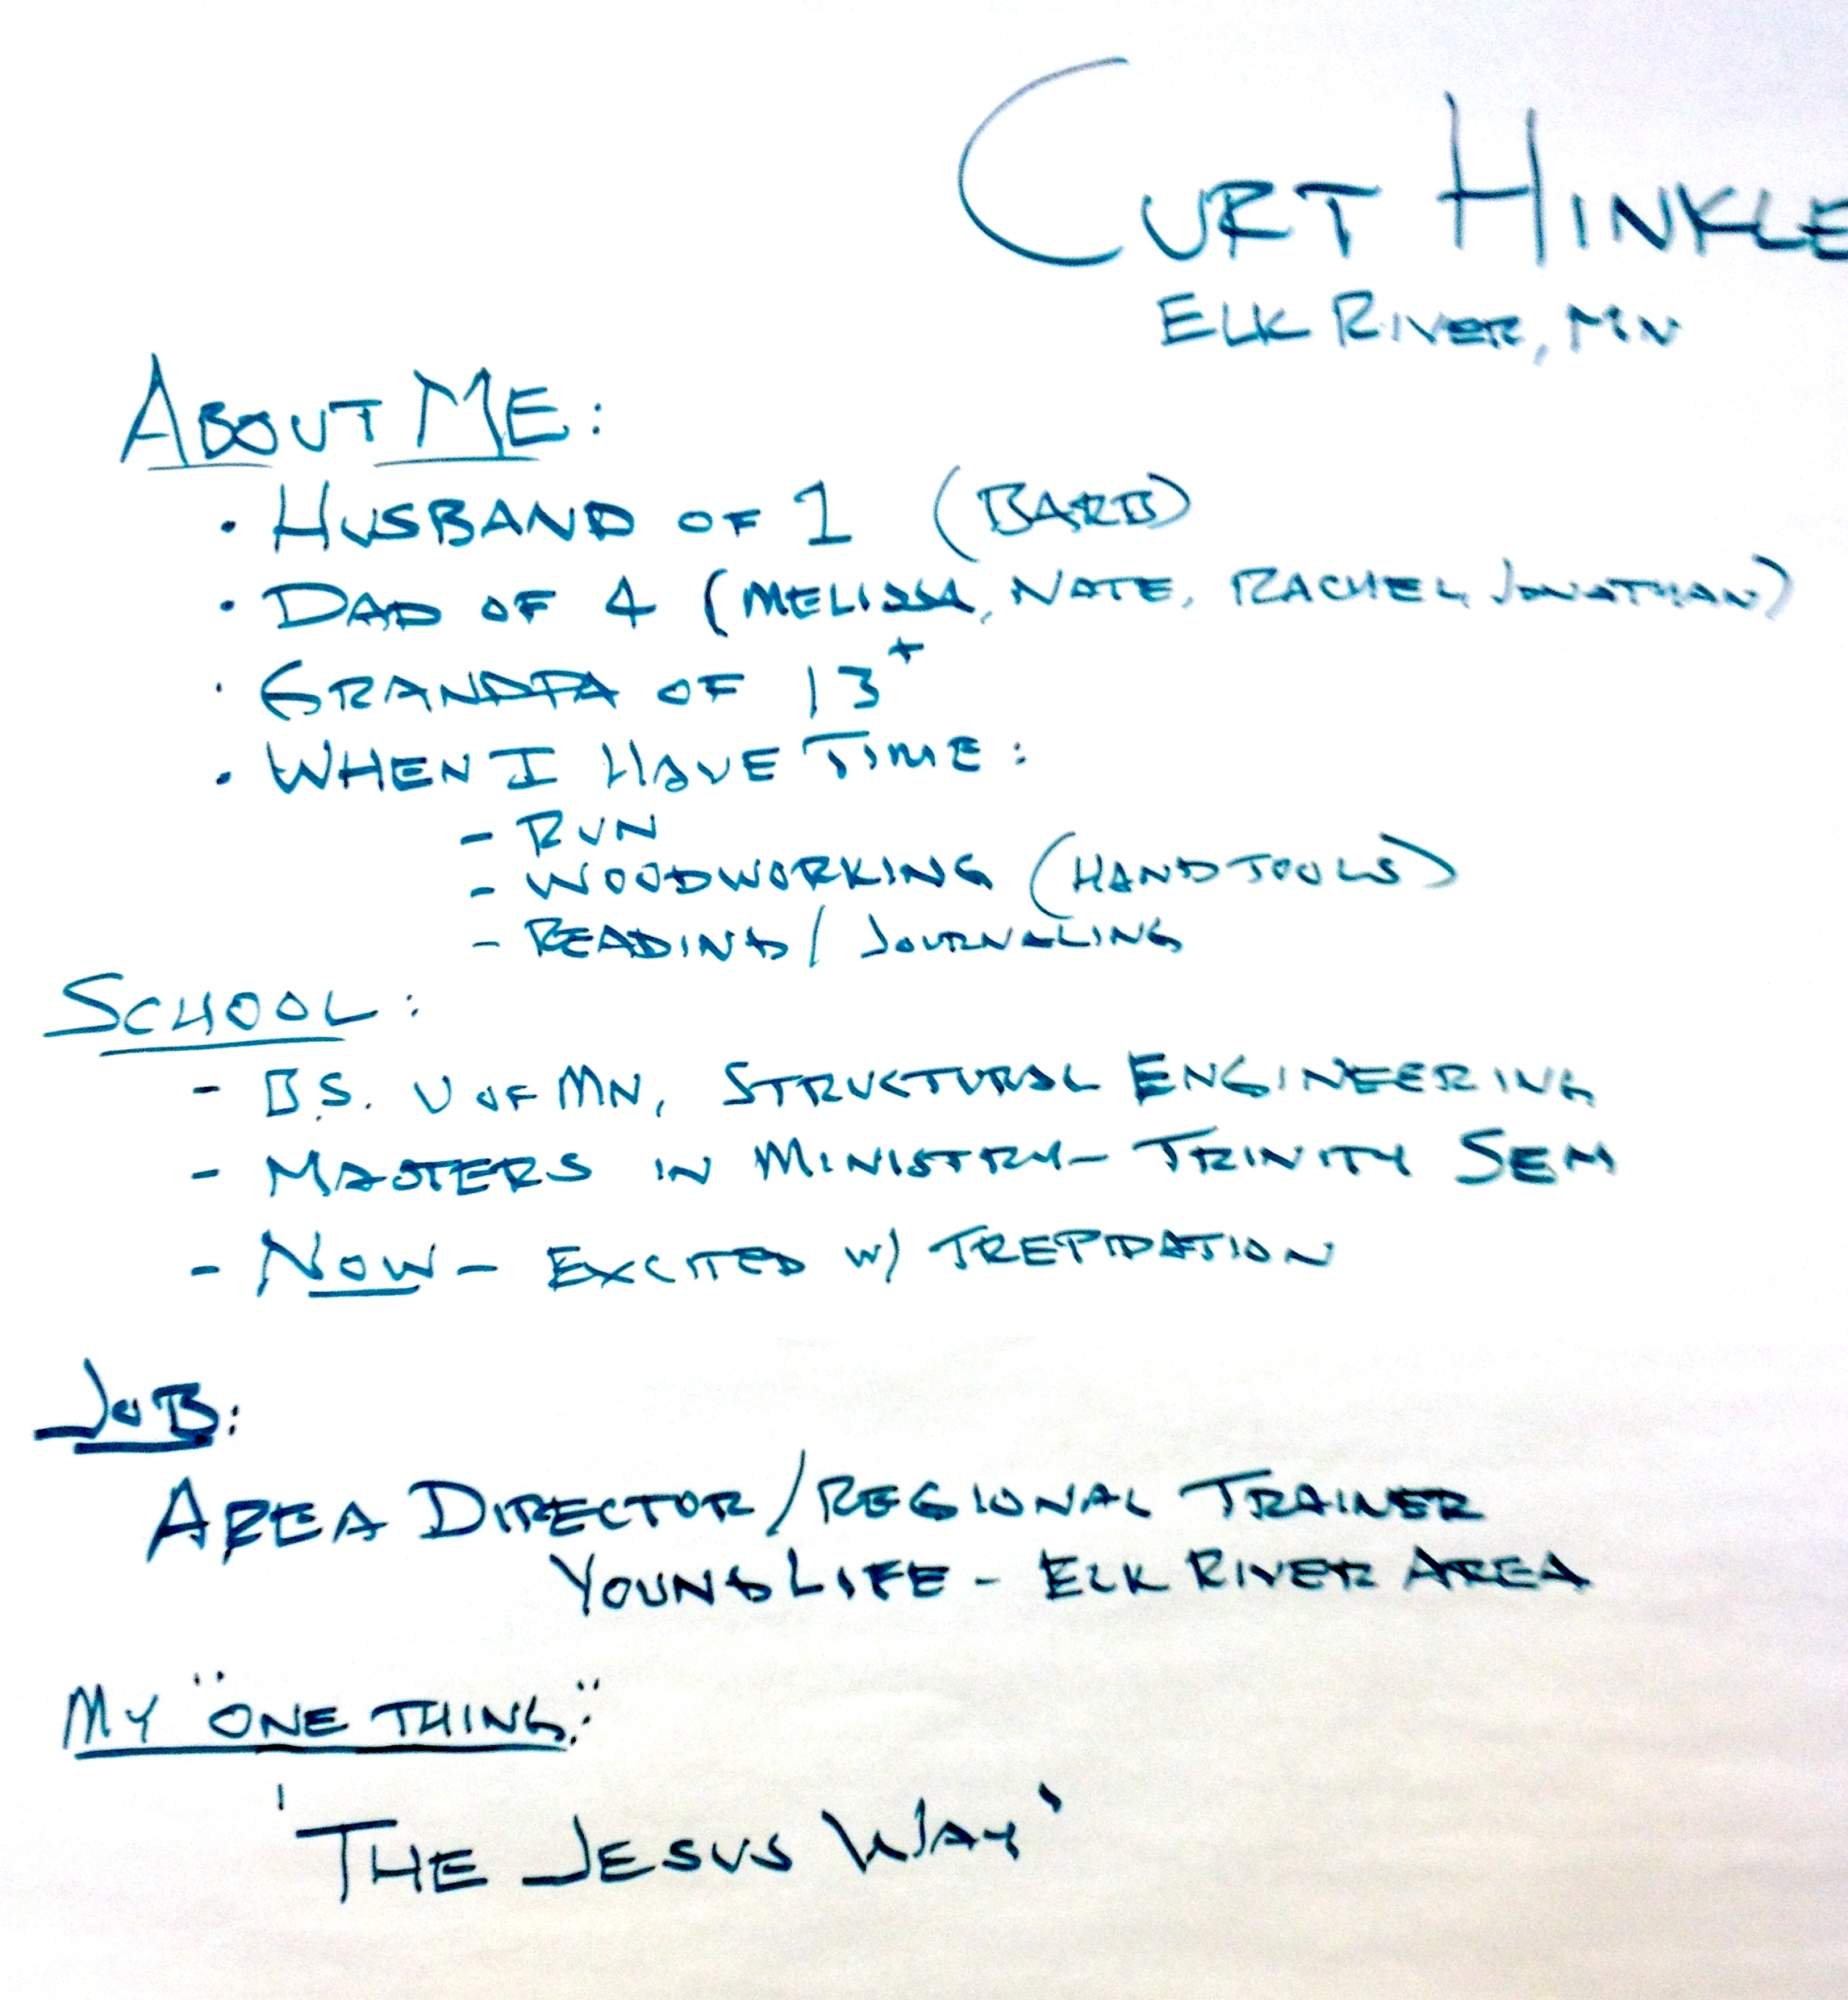 CURT HINKLE
ELK RIVER, MN
ABOUT ME:
• HUSBAND OF 1 (BARB)
• DAD OF 4 (MELISSA, NATE, RACHEL, JONATHAN)
• GRANDPA OF 13+
• WHEN I HAVE TIME:
- RUN
- WOODWORKING (HANDTOOLS)
- READING / JOURNALING
SCHOOL:
- B.S. U OF MN, STRUCTURAL ENGINEERING
- MASTERS IN MINISTRY - TRINITY SEM
- NOW - EXCITED W/ TREPIDATION
JOB:
AREA DIRECTOR / REGIONAL TRAINER
YOUNG LIFE - ELK RIVER AREA
MY "ONE THING":
'THE JESUS WAY'